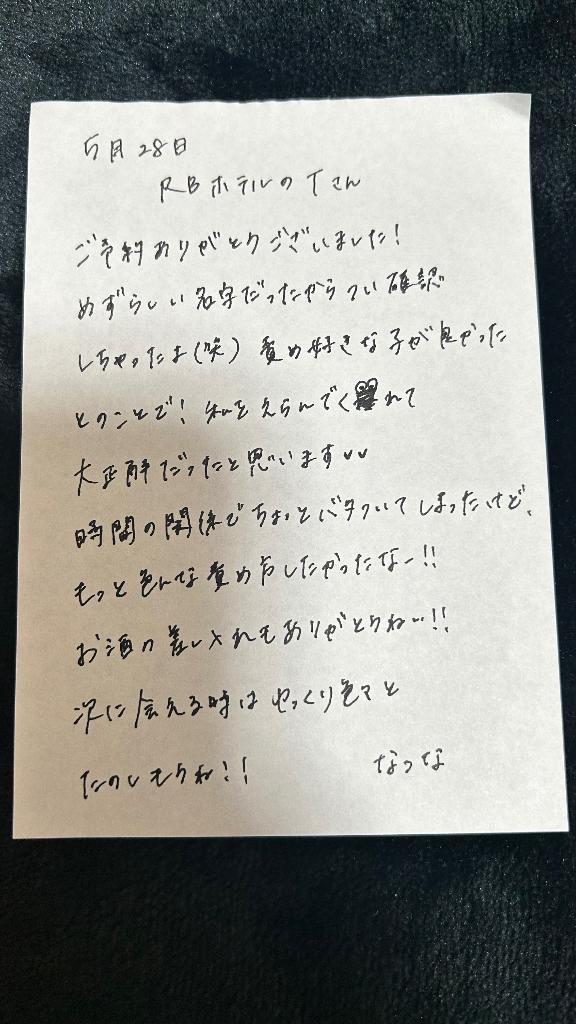 5月28日
RBホテルのTさん
ご予約ありがとうございました!
めずらしい名字だったからつい確認
しちゃったよ(笑) 責め好きな子が良かった
とのことで! 私をえらんでくれて
大正解だったと思います♡♡
時間の関係でちょっとバタついてしまったけど、
もっと色んな責め方したかったなー!!
お酒の差し入れもありがとうね…!!
次に会える時はゆっくり色々と
たのしもうね!!
なつな